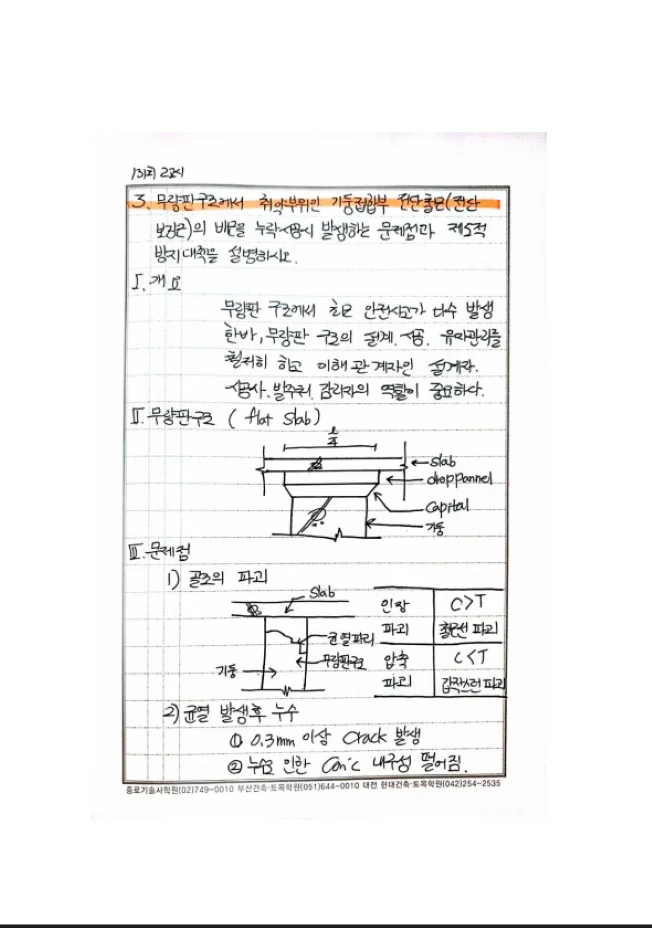 131회 2교시
3. 무량판구조에서 취약부위인 기둥접합부 전단철근(전단
보강근)의 배근을 누락시공시 발생하는 문제점과 제도적
방지대책을 설명하시오.
I. 개요
무량판 구조에서 최근 안전사고가 다수 발생
한바, 무량판 구조의 설계, 시공, 유지관리를
철저히 하고 이해관계자인 설계자,
시공사, 발주처, 감리자의 역할이 중요하다.
II. 무량판구조 ( flat slab )
ℓ/4
slab
drop pannel
capital
기둥
III. 문제점
1) 골조의 파괴
Slab
균열파괴
무량판구조
기둥
인장 파괴 C>T 철근선 파괴
압축 파괴 C<T 갑작스런 파괴
2) 균열 발생후 누수
① 0.3mm 이상 Crack 발생
② 누수로 인한 Con'c 내구성 떨어짐.
종로기술사학원(02)749-0010 부산건축·토목학원(051)644-0010 대전 현대건축·토목학원(042)254-2535